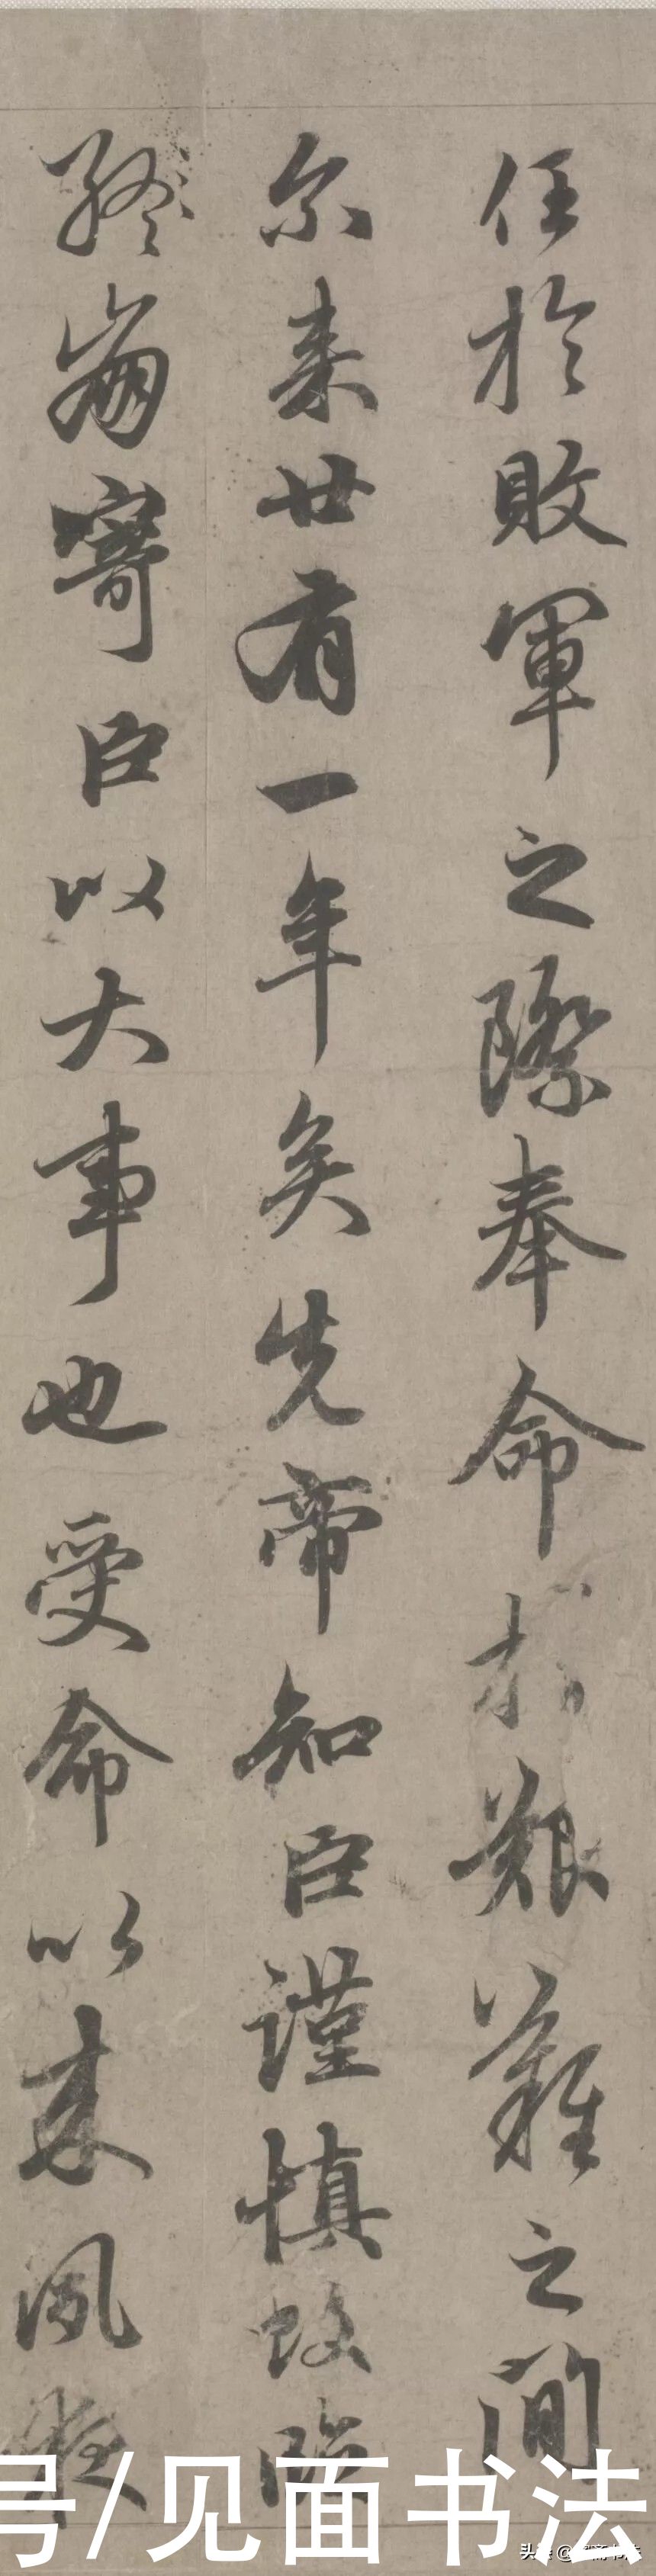 任於敗軍之際奉命於艱難之間
尔来廿有一年矣先帝知臣謹慎故臨
終崩寄臣以大事也受命以来夙夜
号/见面书法